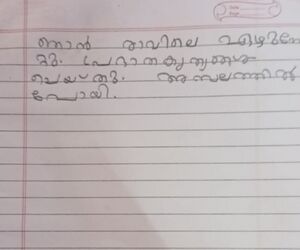 ഞാൻ രാവിലെ എഴുന്നേ
റ്റു. പ്രഭാതകൃത്യങ്ങൾ
ചെയ്തു. അമ്പലത്തിൽ
പോയി.